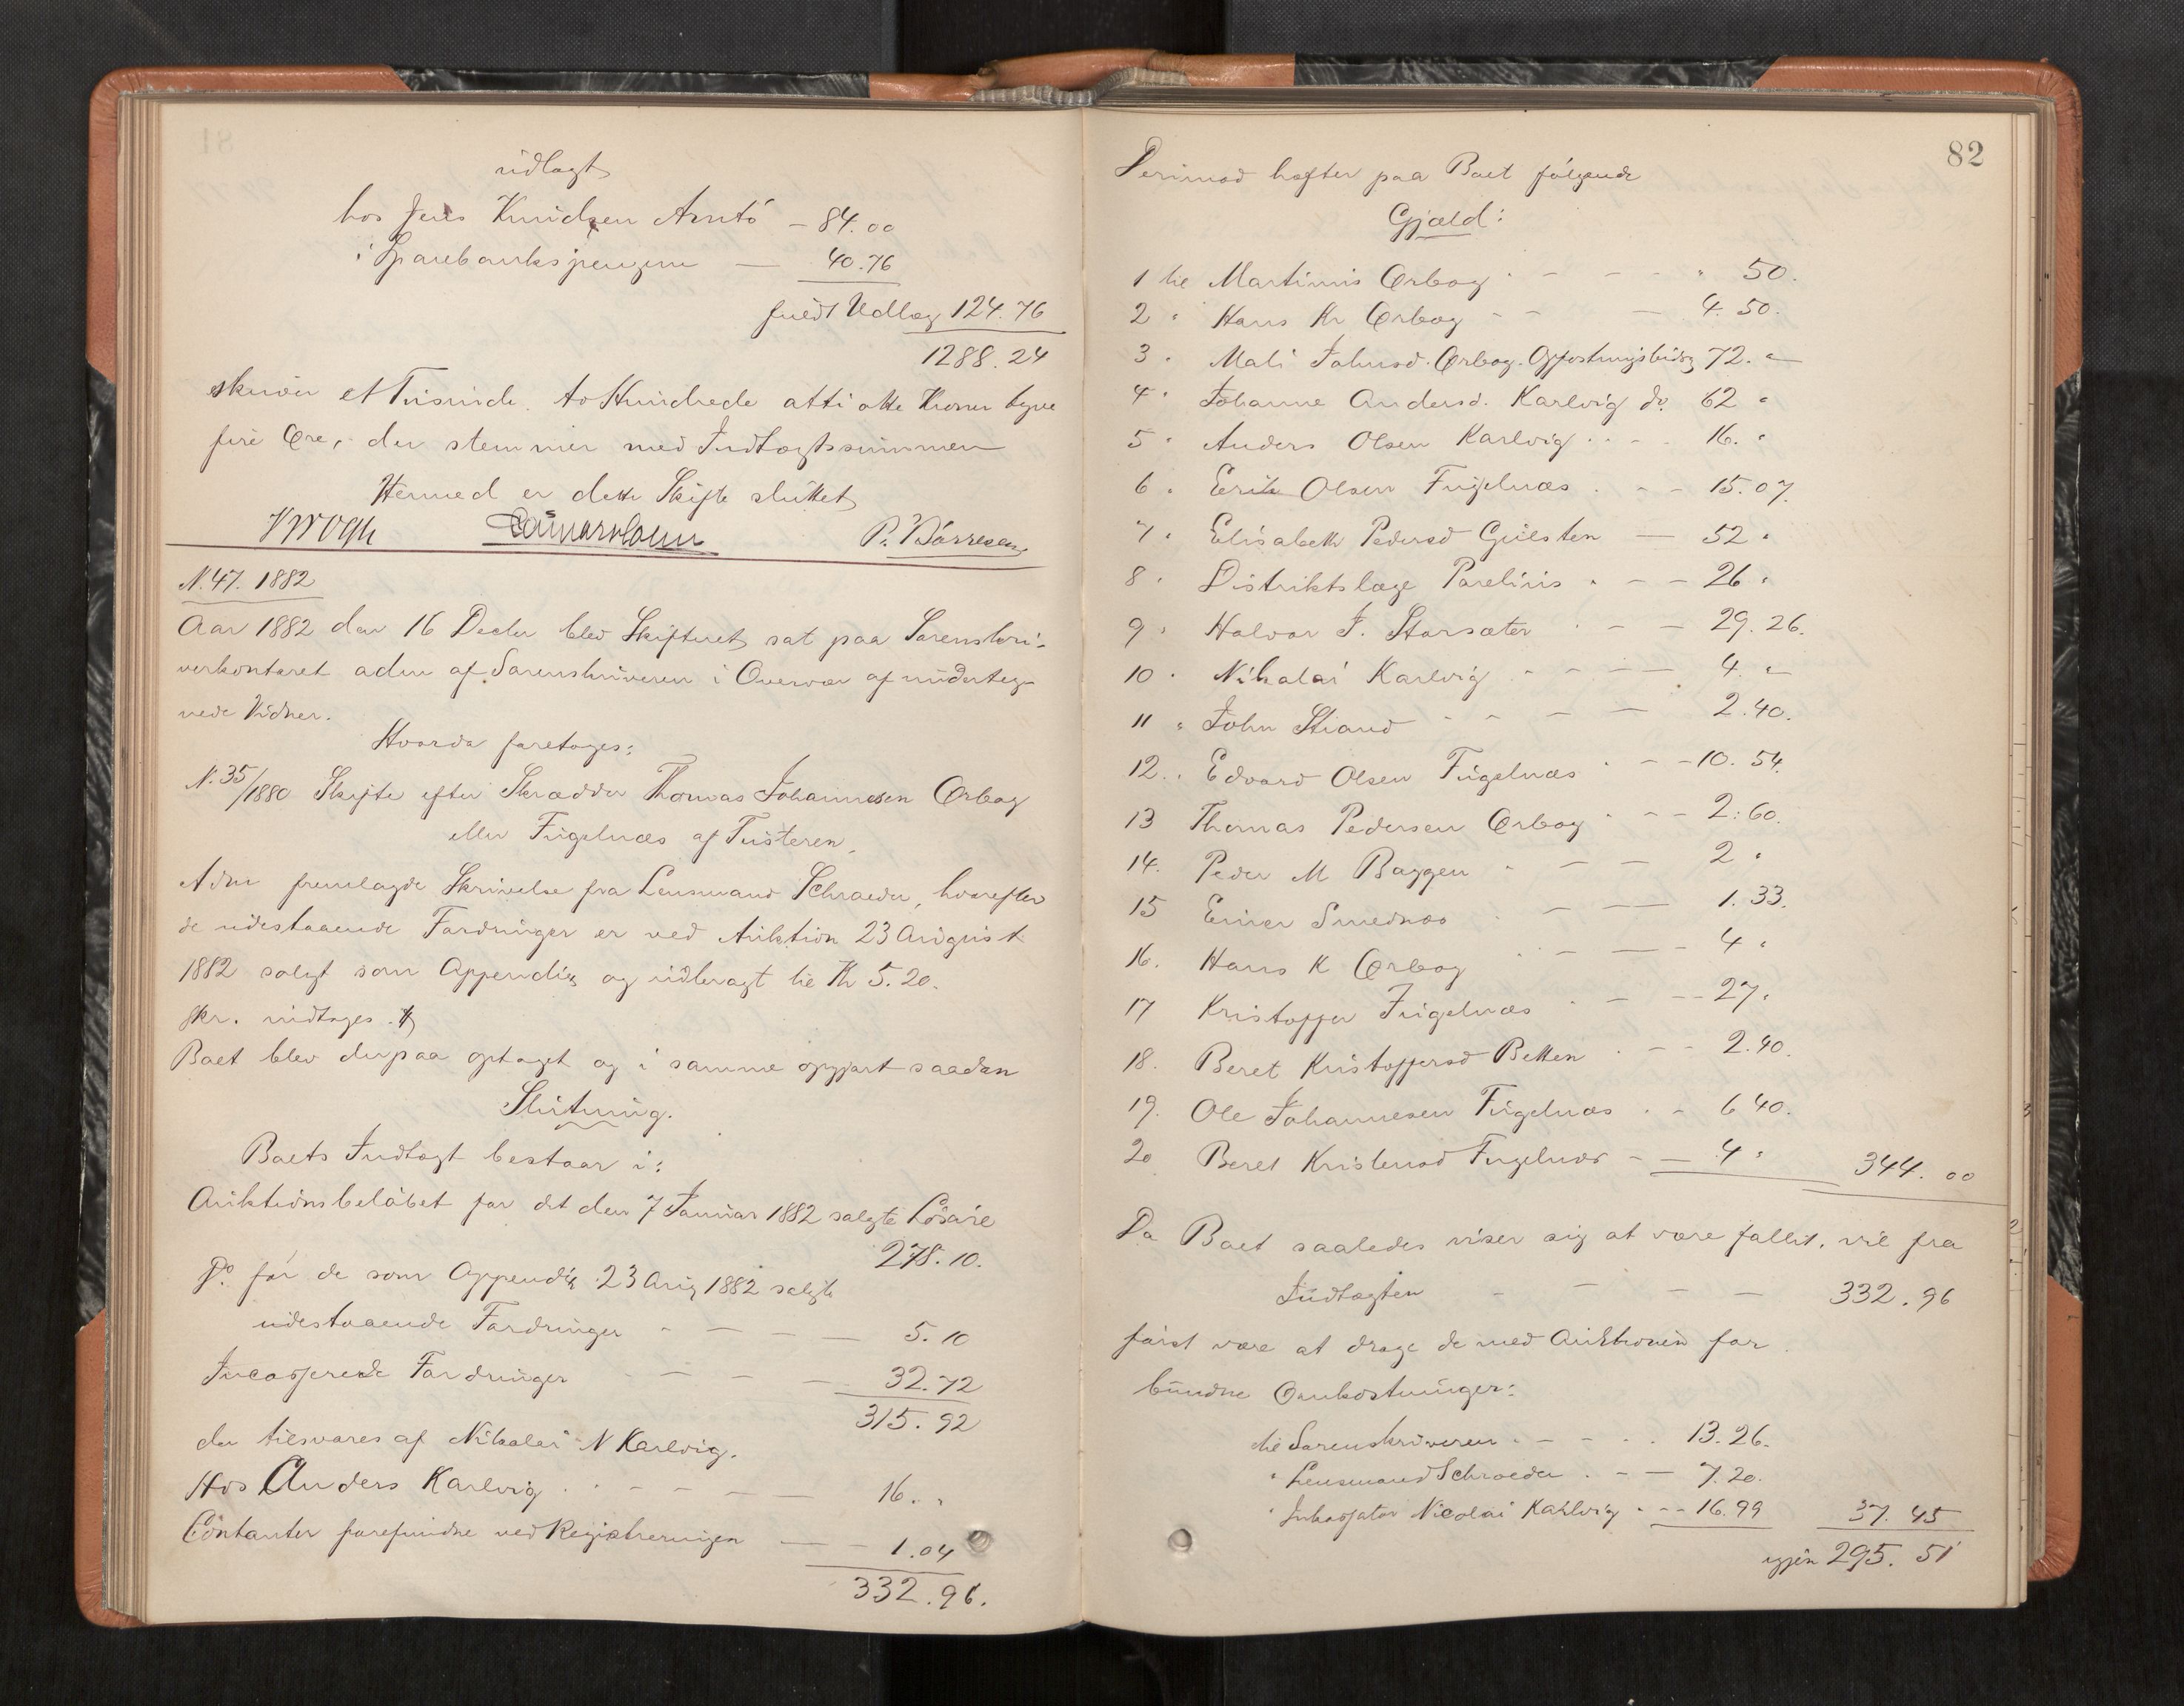 udlagt
hos Jens Knudsen Arntö — 84.00
i Sparebankspengene — 40.76
fuldt Udlæg 124.76
1288.24
skriver et Tusinde to Hundrede otti otte Kroner tyve
fire Øre, der stemmer med Indtægtssummen
Hermed er dette Skifte sluttet
Krogh P. Börresen
N. 47. 1882
Aar 1882 den 16 Decbr blev Skifteret sat paa Sorenskri-
verkontoret adm af Sorenskriveren i Overvær af underteg-
nede Vidner.
Hvorda foretoges:
N. 35/1880 Skifte efter Skrædder Thomas Johannesen Ørbog
eller Fugelnæs af Tusteren.
Adm fremlagde Skrivelse fra Lensmand Schroeder, hvorefter
de udestaaende Fordringer er ved Auktion 23 August
1882 solgt som Appendix og udbragt til Kr 5.20.
Skr. indtages.
Boet blev derpaa optaget og i samme opgjort saadan
Slutning.
Boets Indtægt bestaar i:
Auktionsbelöbet for det den 7 Januar 1882 solgte Lösöre
278.10.
Do. for de som Appendix 23 Aug 1882 solgte
udestaaende Fordringer - — - — 5.10
Incasserede Fordringer - — - — 32.72
315.92
der tilsvares af Nikolai N Karlvig.
Hos Anders Karlvig . - - - — — 16. "
Contanter forefundne ved Registreringen — - 1.04
332.96.
82
Derimod hefter paa Boet fölgende
Gjæld:
1 til Martinus Ørbog - — - - " 50.
2 " Hans Kr Ørbog - - — 4.50.
3 " Mali Johnsd. Ørbog. Opfostringsbidrag 72. "
4 " Johanne Andersd. Karlvig do. 62 "
5 " Anders Olsen Karlvig . . - - 16. "
6 " Erik Olsen Fugelnæs . - - 15.07.
7 " Elisabeth Pedersd Gulsten — 52 "
8 " Distriktslæge Parelius . - - 26 "
9 " Halvor J. Storsæter - — - 29.26.
10 " Nikolai Karlvig - - - — 4. "
11 " John Strand - - - — 2.40.
12. " Edvard Olsen Fugelnæs - - - 10.54.
13 Thomas Pedersen Ørbog - - - 2.60.
14. Peder M Baggen - — — 2 "
15 Einer Smednæs . - — 1.33.
16. Hans K Ørbog - - — - 4 "
17 Kristoffer Fugelnæs - - — 27 "
18. Beret Kristoffersd Betten . - - 2.40.
19. Ole Johannesen Fugelnæs . - 6 40.
20 Beret Kristensd Fugelnæs - — 4 " 344.00
Da Boet saaledes viser sig at være fallit, vil fra
Indtægten - — - — 332.96
först være at drage de med Auktionen for-
bundne Omkostninger:
til Sorenskriveren . - - . . 13.26.
" Lensmand Schroeder . - — 7.20.
" Inkassator Nicolai Karlvig . - - 16.99 37.45
igjen 295.51